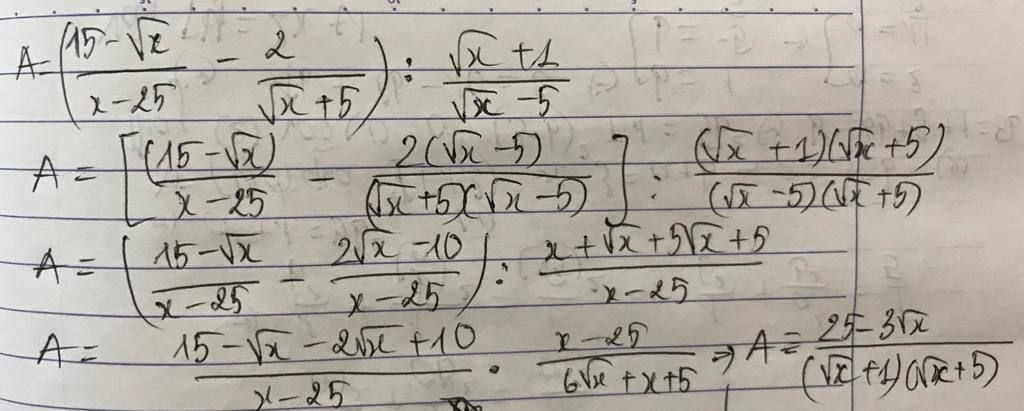 A=((15-√x)/(x-25) - 2/(√x+5)) : (√x+1)/(√x-5)
A = [(15-√x)/(x-25) - 2(√x-5)/((√x+5)(√x-5))] : (√x+1)(√x+5)/((√x-5)(√x+5))
A = ((15-√x)/(x-25) - (2√x-10)/(x-25)) : (x+√x+5√x+5)/(x-25)
A = (15-√x-2√x+10)/(x-25) . (x-25)/(6√x+x+5) ⇒ A = (25-3√x)/((√x+1)(√x+5))